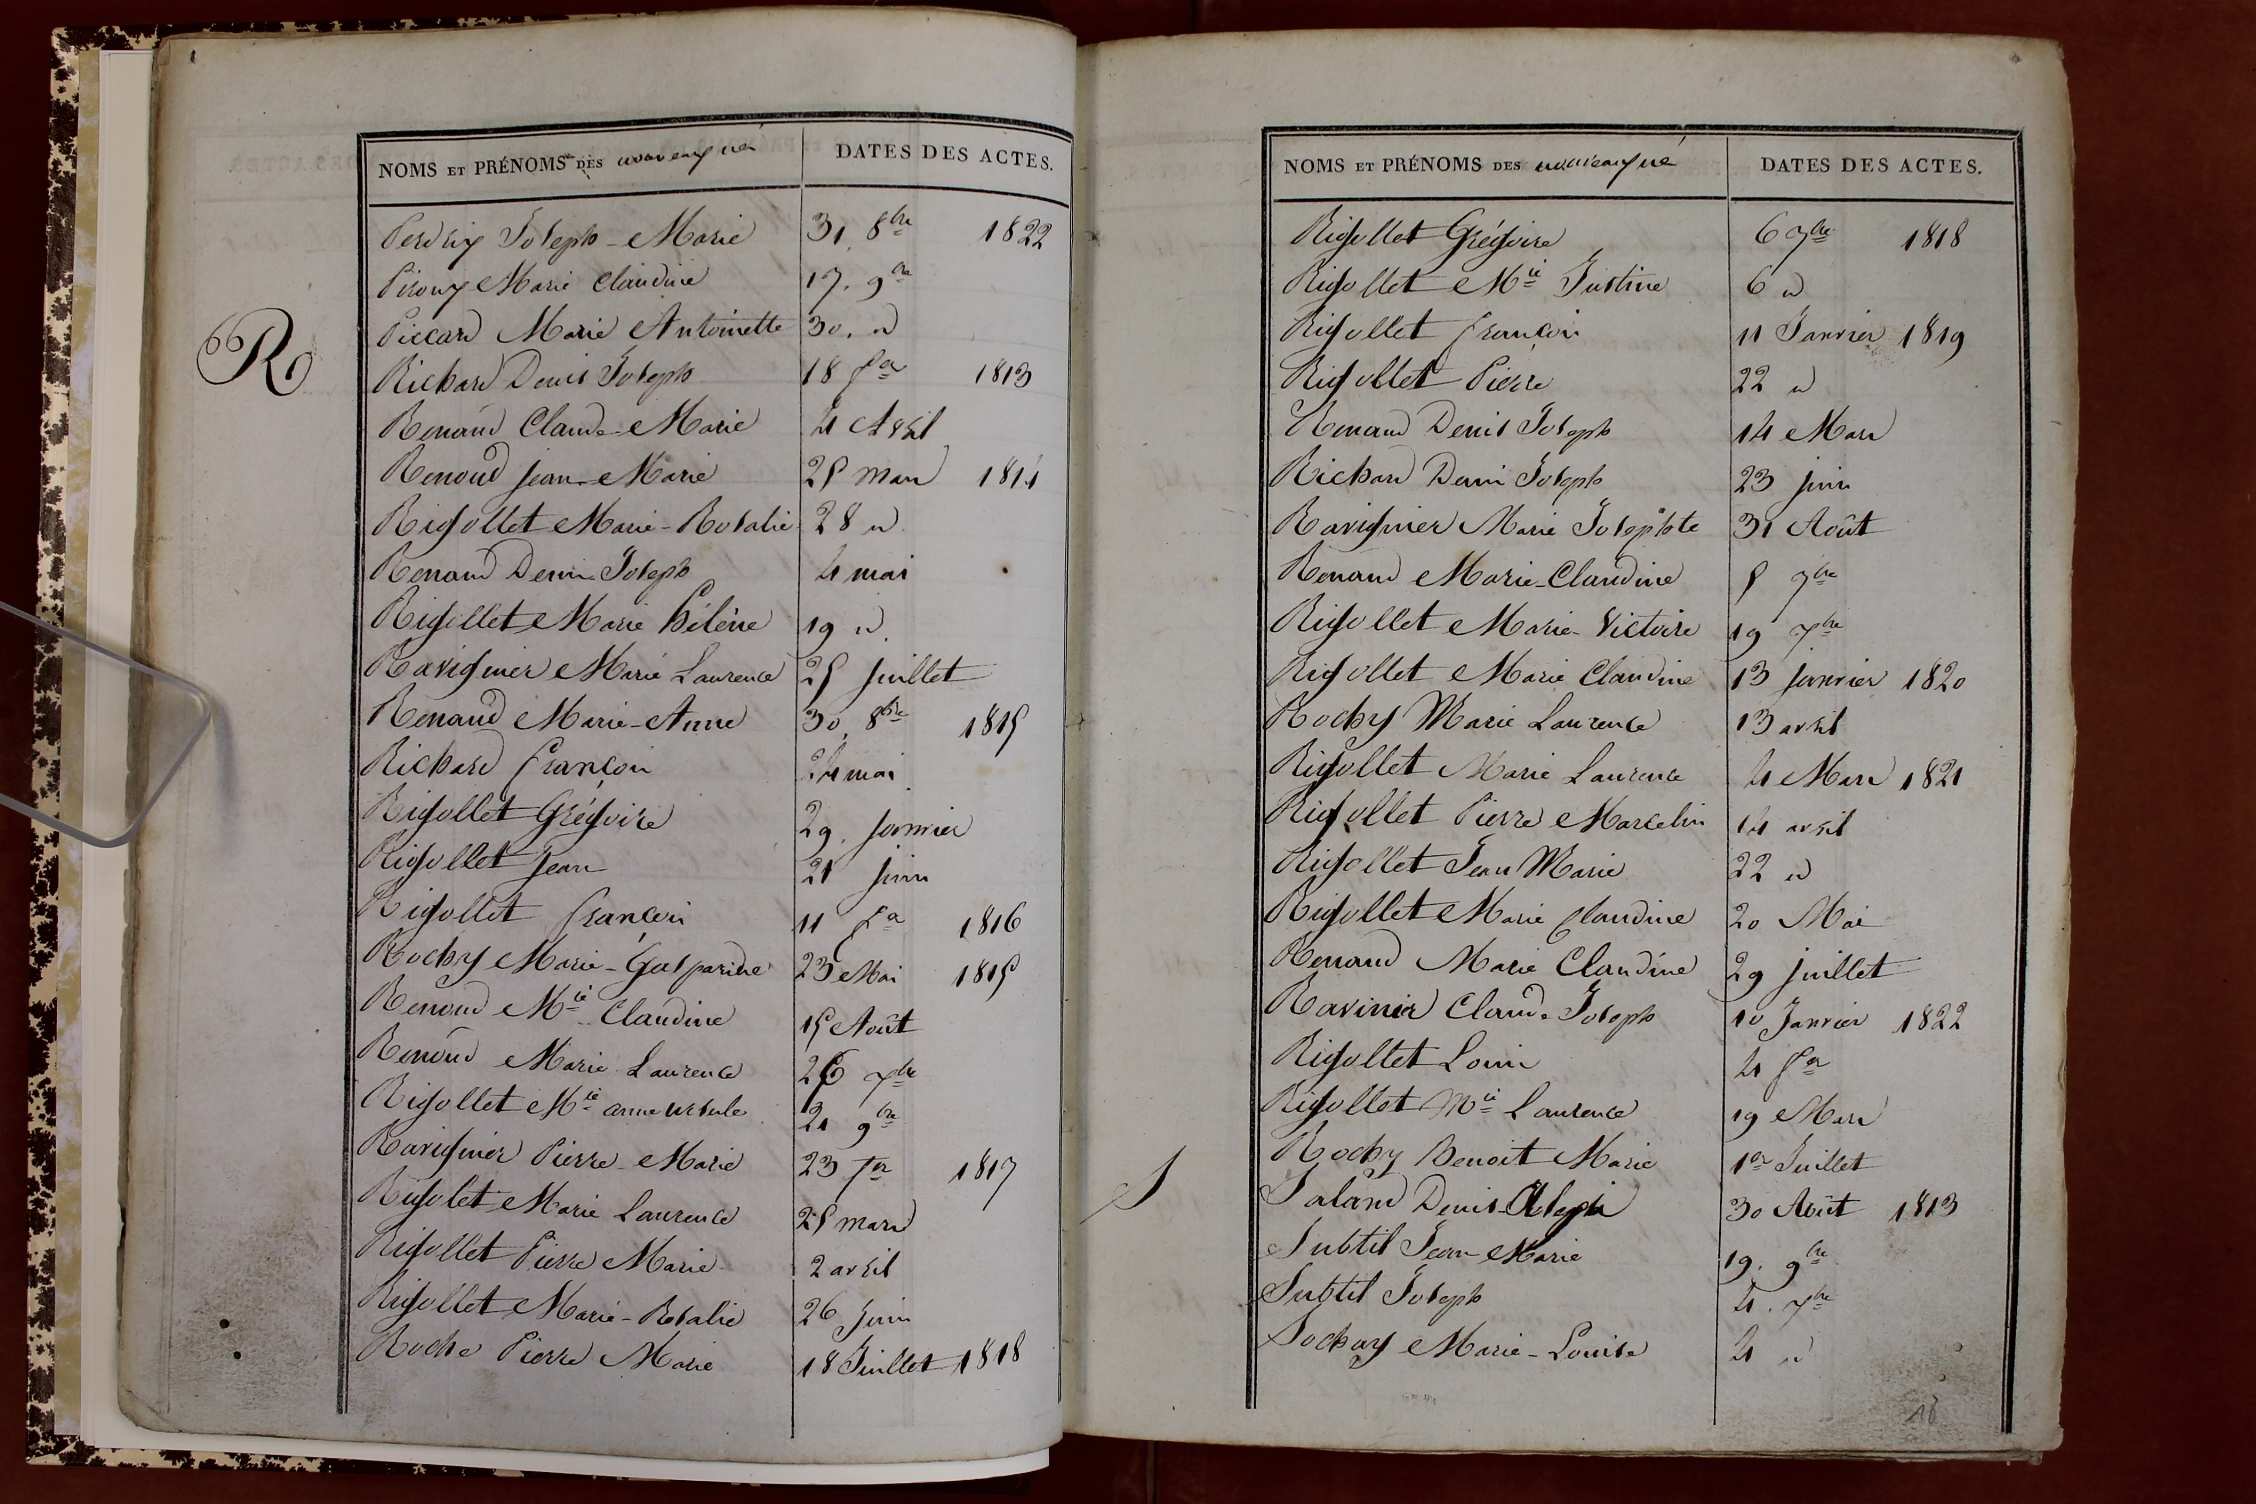 NOMS ET PRÉNOMS DES nouveaux nés DATES DES ACTES.
Perdrix Joseph-Marie 31. 8bre 1822
Piroux Marie Claudine 17. 9bre
Piccard Marie Antoinette 30. d
R
Richard Denis Joseph 18 fer 1813
Renaud Claude-Marie 4 Avril
Renoud Jean-Marie 25 mars 1814
Rigollet Marie-Rosalie 28 d
Renaud Denis Joseph 4 mai
Rigollet Marie hélène 19 d
Ravignier Marie Laurence 25 Juillet
Renaud Marie-Anne 30. 8bre 1815
Richard françois 24 mai
Rigollet Grégoire 29. Janvier
Rigollet Jean 21 Juin
Rigollet françois 11 fer 1816
Rochy Marie-Gasparine 23 Mai 1815
Renoud Mie Claudine 15 Août
Renoud Marie Laurence 26 7bre
Rigollet Mie anne ursule 21 9bre
Ravignier Pierre-Marie 23 fer 1817
Rigolet Marie Laurence 25 mars
Rigollet Pierre Marie 2 avril
Rigollet Marie-Rosalie 26 Juin
Roche Pierre Marie 18 Juillet 1818
NOMS ET PRÉNOMS DES nouveaux né DATES DES ACTES.
Rigollet Grégoire 6 7bre 1818
Rigollet Mie Justine 6 d
Rigollet françois 11 Janvier 1819
Rigollet Pierre 22 d
Renaud Denis Joseph 14 Mars
Richard Denis Joseph 23 Juin
Ravignier Marie Josephte 31 Août
Renaud Marie-Claudine 5 7bre
Rigollet Marie-Victoire 19 7bre
Rigollet Marie Claudine 13 Janvier 1820
Rochy Marie Laurence 13 avril
Rigollet Marie Laurence 4 Mars 1821
Rigollet Pierre Marcelin 14 avril
Rigollet Jean Marie 22 d
Rigollet Marie Claudine 20 Mai
Renaud Marie Claudine 29 Juillet
Ravinier Claude Joseph 10 Janvier 1822
Rigollet Louis 4 fer
Rigollet Mie Laurence 19 Mars
Rochy Benoit Marie 1er Juillet
S
Saland Denis 30 Août 1813
Subtil Jean Marie 19. 9bre
Subtil Joseph 4. 7bre
Sochay Marie-Louise 4 d
18